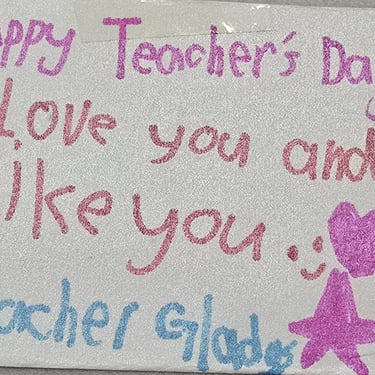 appy Teacher's Day
Love you and
like you.
eacher Glades